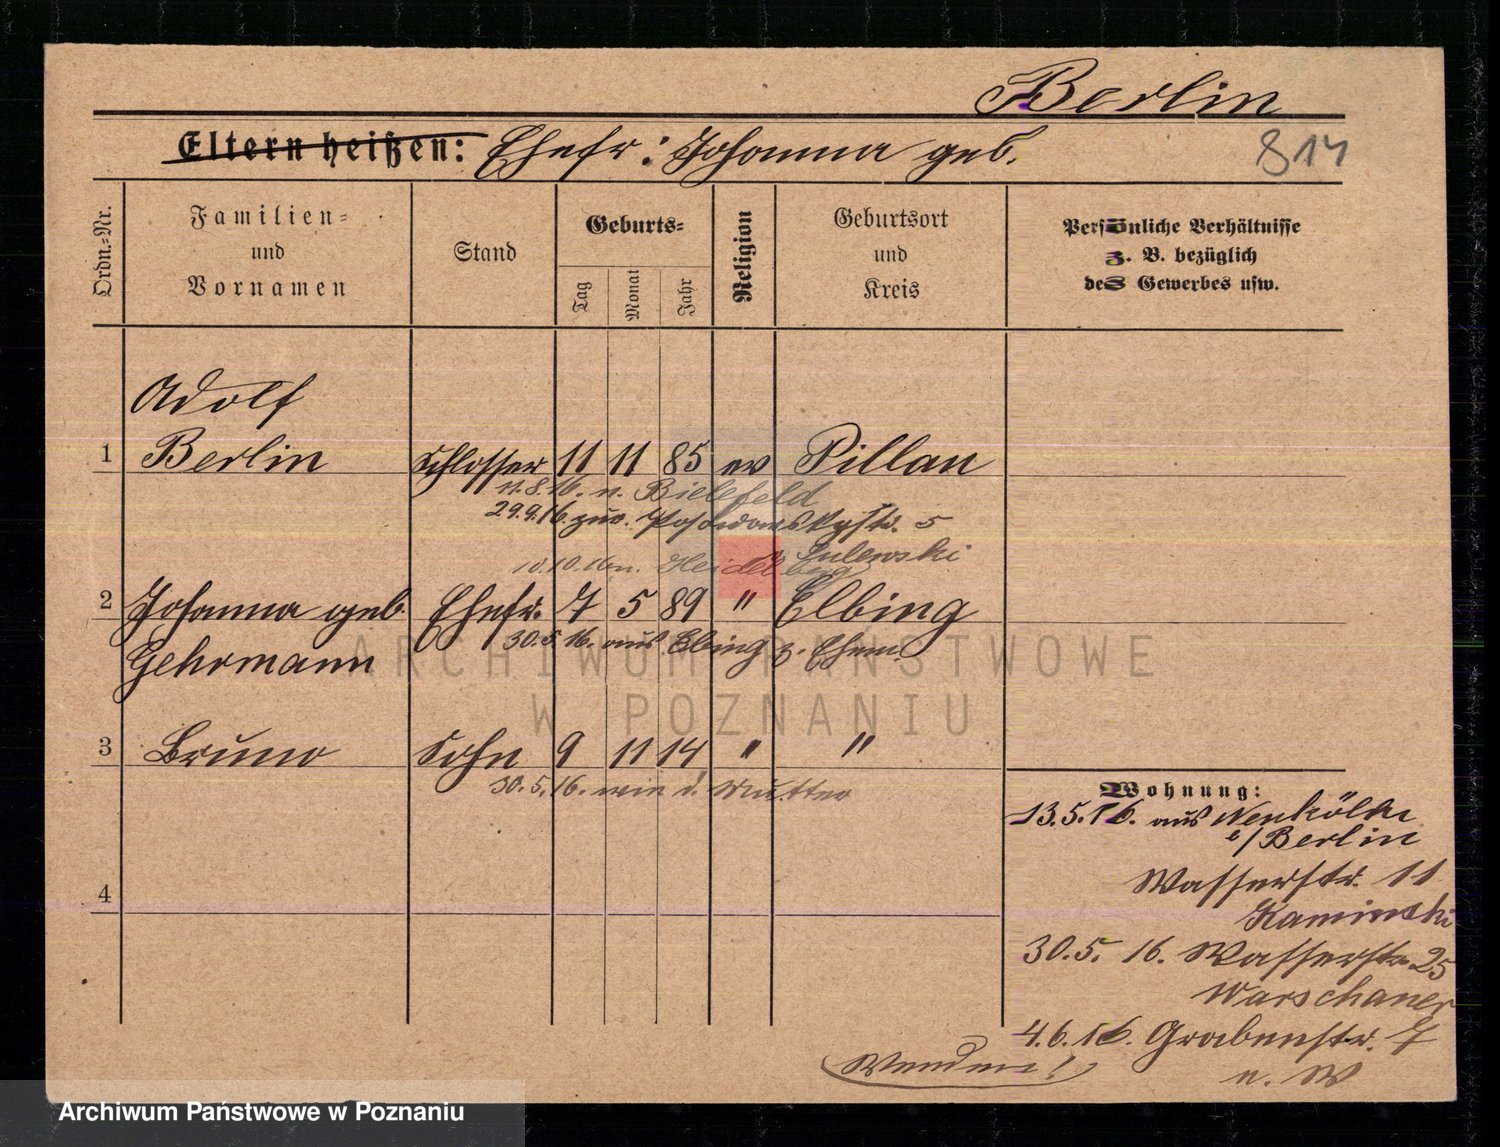 Berlin
Eltern heißen: Ehefr: Johanna geb.
814
Ordn.-Nr.
Familien-
und
Vornamen
Stand
Geburts-
Tag
Monat
Jahr
Religion
Geburtsort
und
Kreis
Persönliche Verhältnisse
z. B. bezüglich
des Gewerbes usw.
Adolf
1 Berlin Schlosser 11 11 85 ev Pillau
11.8.16. n. Bielefeld
29.9.16. zur. Posadowskystr. 5
b Sulewski
10.10.16 n. Heidelberg
2 Johanna geb. Ehefr. 7 5 89 " Elbing
Gehrmann 30.5.16. aus Elbing z. Ehem.
3 Bruno Sohn 9 11 14 " "
30.5.16. wie d. Mutter
4
Wohnung:
13.5.16. aus Neukölln
b/Berlin
Wasserstr. 11
Kaminski
30.5.16. Wasserstr. 25
Warschauer
4.6.16. Grabenstr. 7
n. W
Wenden!
ARCHIWUM PAŃSTWOWE
W POZNANIU
Archiwum Państwowe w Poznaniu